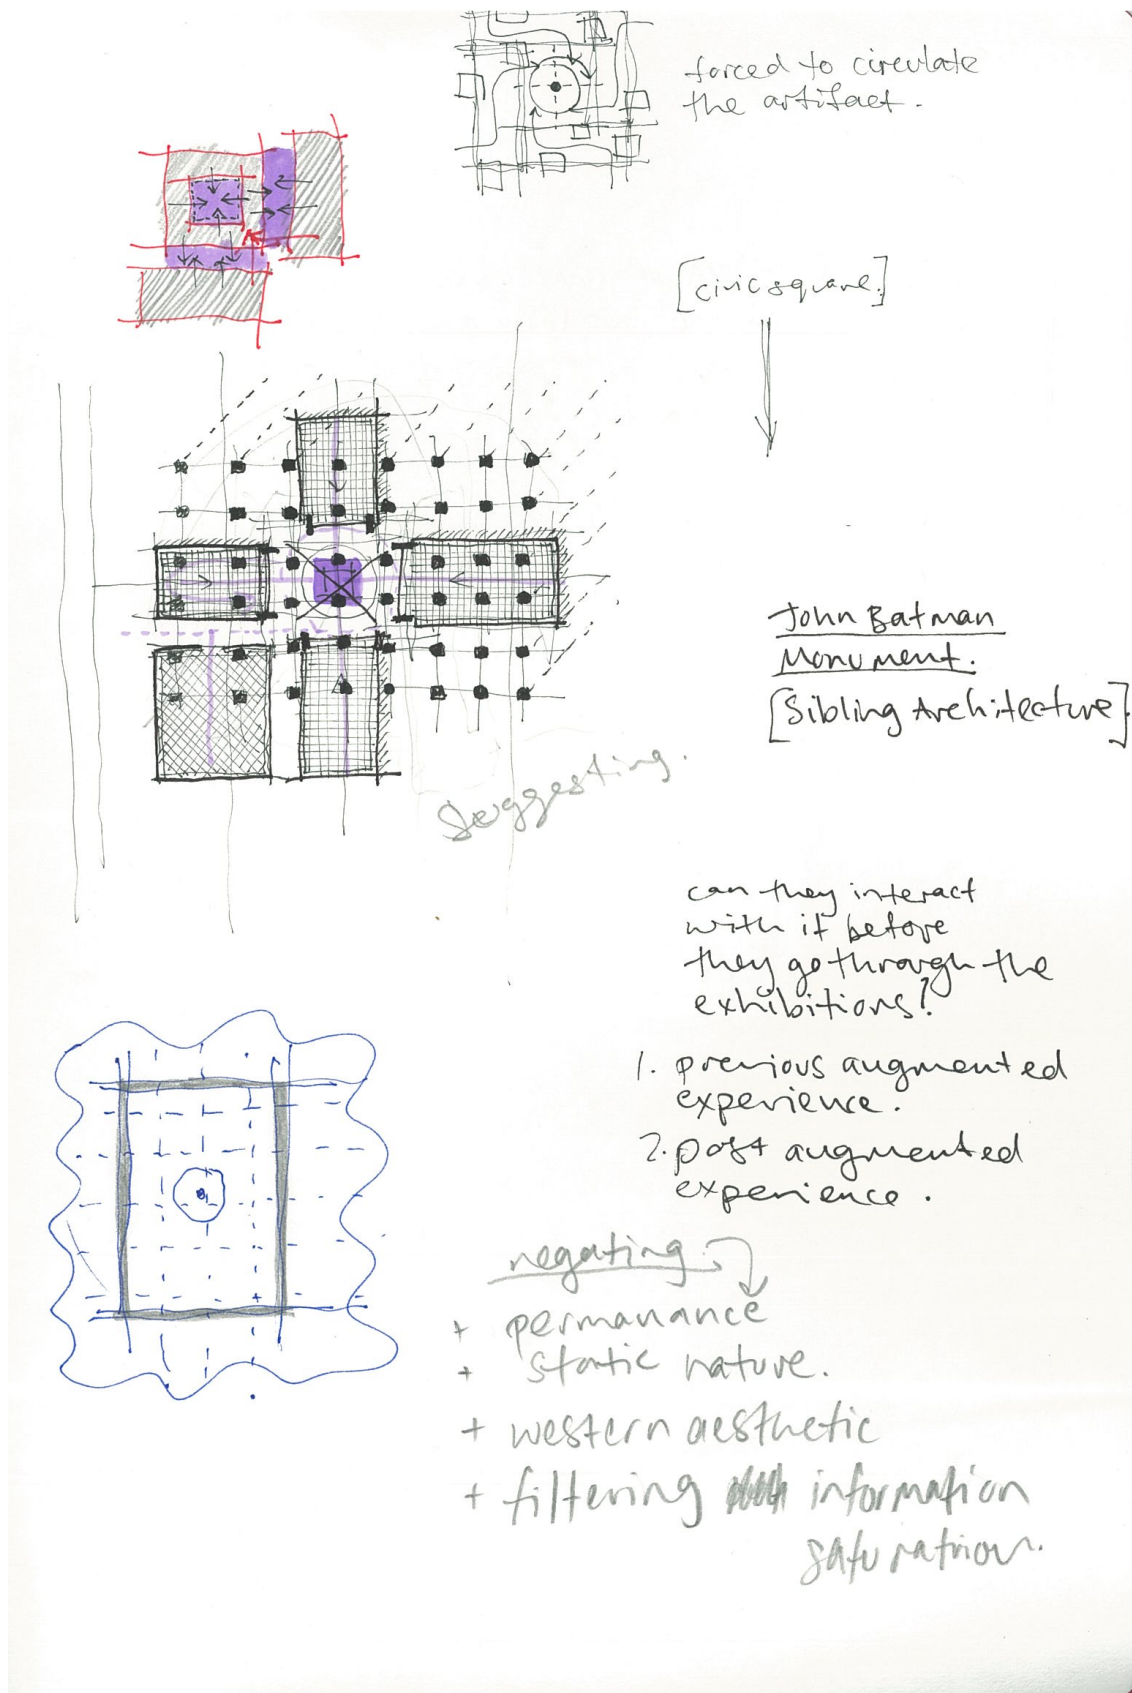 forced to circulate
the artifact.
[civic square.]
John Batman
Monument.
[Sibling Architecture]
Suggesting.
can they interact
with it before
they go through the
exhibitions?
1. previous augmented
experience.
2. post augmented
experience.
negating
+ permanance
+ static nature.
+ western aesthetic
+ filtering information
saturation.